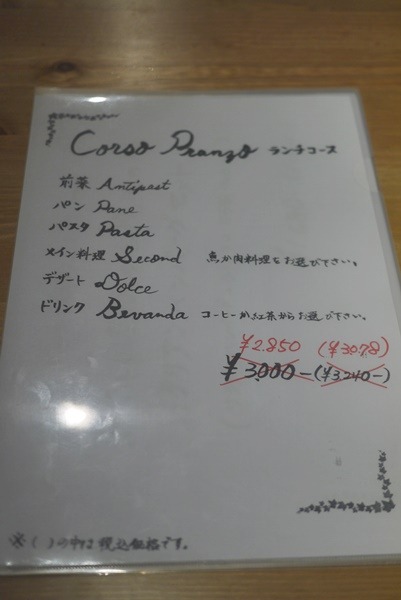 Corso Pranzo ランチコース
前菜 Antipast
パン Pane
パスタ Pasta
メイン料理 Second 魚か肉料理をお選び下さい。
デザート Dolce
ドリンク Bevanda コーヒーか紅茶からお選び下さい。
¥2.850 (¥3078)
¥3.000- (¥3.240-)
※( )の中は税込価格です。